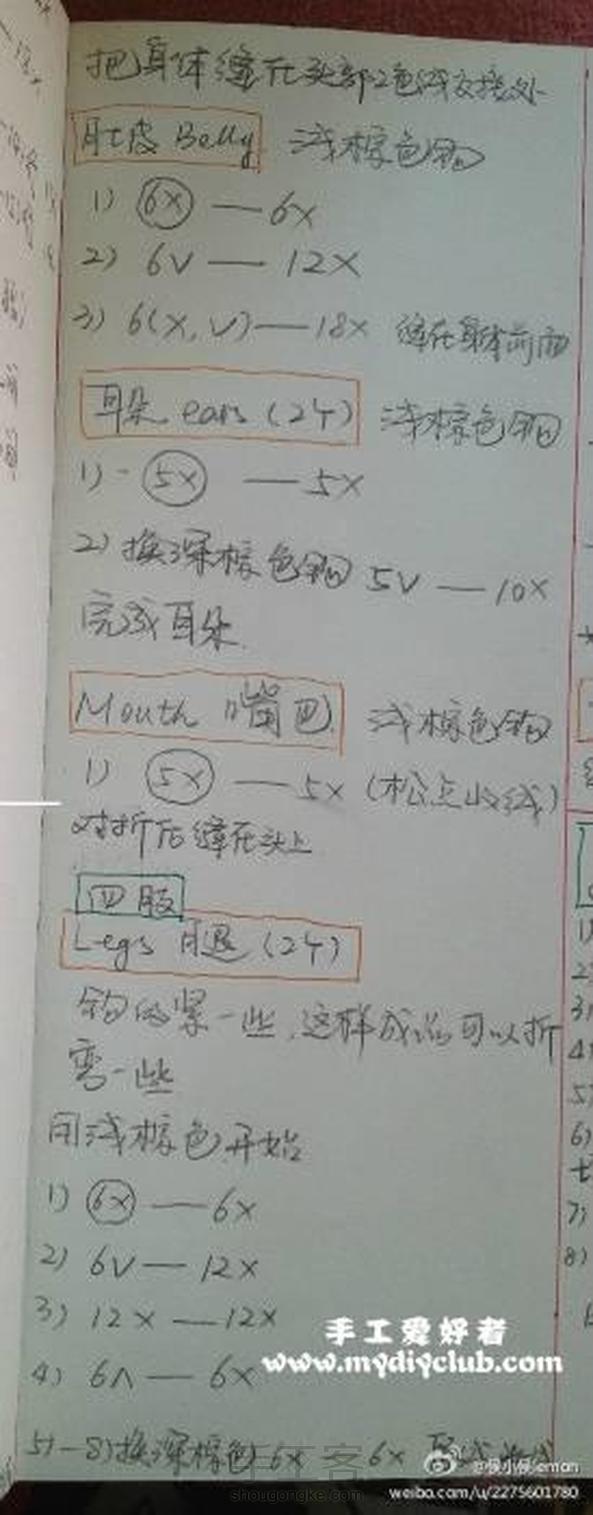 把身体缝在头部2色线交接处
肚皮 Belly 浅棕色钩
1) 6X — 6X
2) 6V — 12X
3) 6(X,V) — 18X 缝在身体前面
耳朵 ears (2个) 浅棕色钩
1) 5X — 5X
2) 换深棕色钩 5V — 10X
完成耳朵.
Mouth 嘴巴 浅棕色钩
1) 5X — 5X (松点收线)
对折后缝在头上
四肢
Legs 腿 (2个)
钩的紧一些,这样成品可以折
弯一些
用浅棕色开始
1) 6X — 6X
2) 6V — 12X
3) 12X — 12X
4) 6Λ — 6X
5)-8) 换深棕色 6X 6X
手工爱好者
www.mydiyclub.com
手工客
shougongke.com
weibo.com/u/2275601780